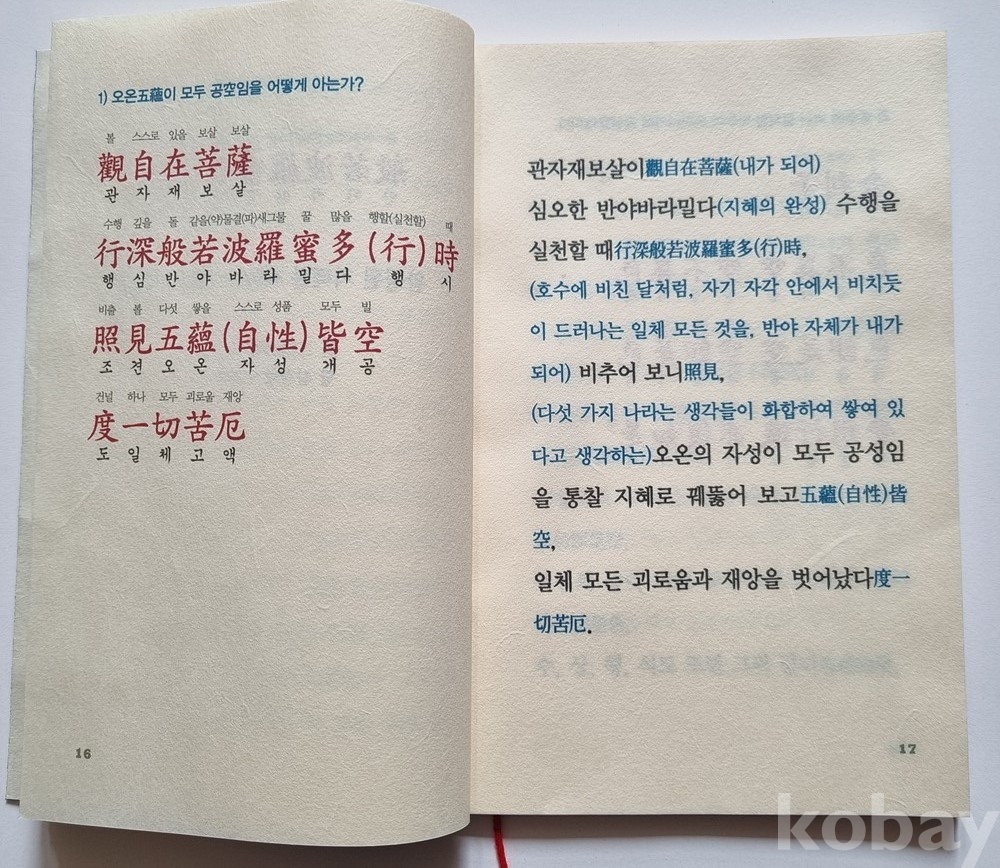 1) 오온五蘊이 모두 공空임을 어떻게 아는가?
볼 스스로 있을 보살 보살
觀自在菩薩
관 자 재 보 살
수행 깊을 돌 같을(약)물결(파)새그물 꿀 많을 행할(실천할) 때
行深般若波羅蜜多(行)時
행 심 반 야 바 라 밀 다 행 시
비출 볼 다섯 쌓을 스스로 성품 모두 빌
照見五蘊(自性)皆空
조 견 오 온 자 성 개 공
건널 하나 모두 괴로울 재앙
度一切苦厄
도 일 체 고 액
16
관자재보살이觀自在菩薩(내가 되어)
심오한 반야바라밀다(지혜의 완성) 수행을
실천할 때行深般若波羅蜜多(行)時,
(호수에 비친 달처럼, 자기 자각 안에서 비치듯
이 드러나는 일체 모든 것을, 반야 자체가 내가
되어) 비추어 보니照見,
(다섯 가지 나라는 생각들이 화합하여 쌓여 있
다고 생각하는)오온의 자성이 모두 공성임
을 통찰 지혜로 꿰뚫어 보고五蘊(自性)皆
空,
일체 모든 괴로움과 재앙을 벗어났다度一
切苦厄.
17
kobay